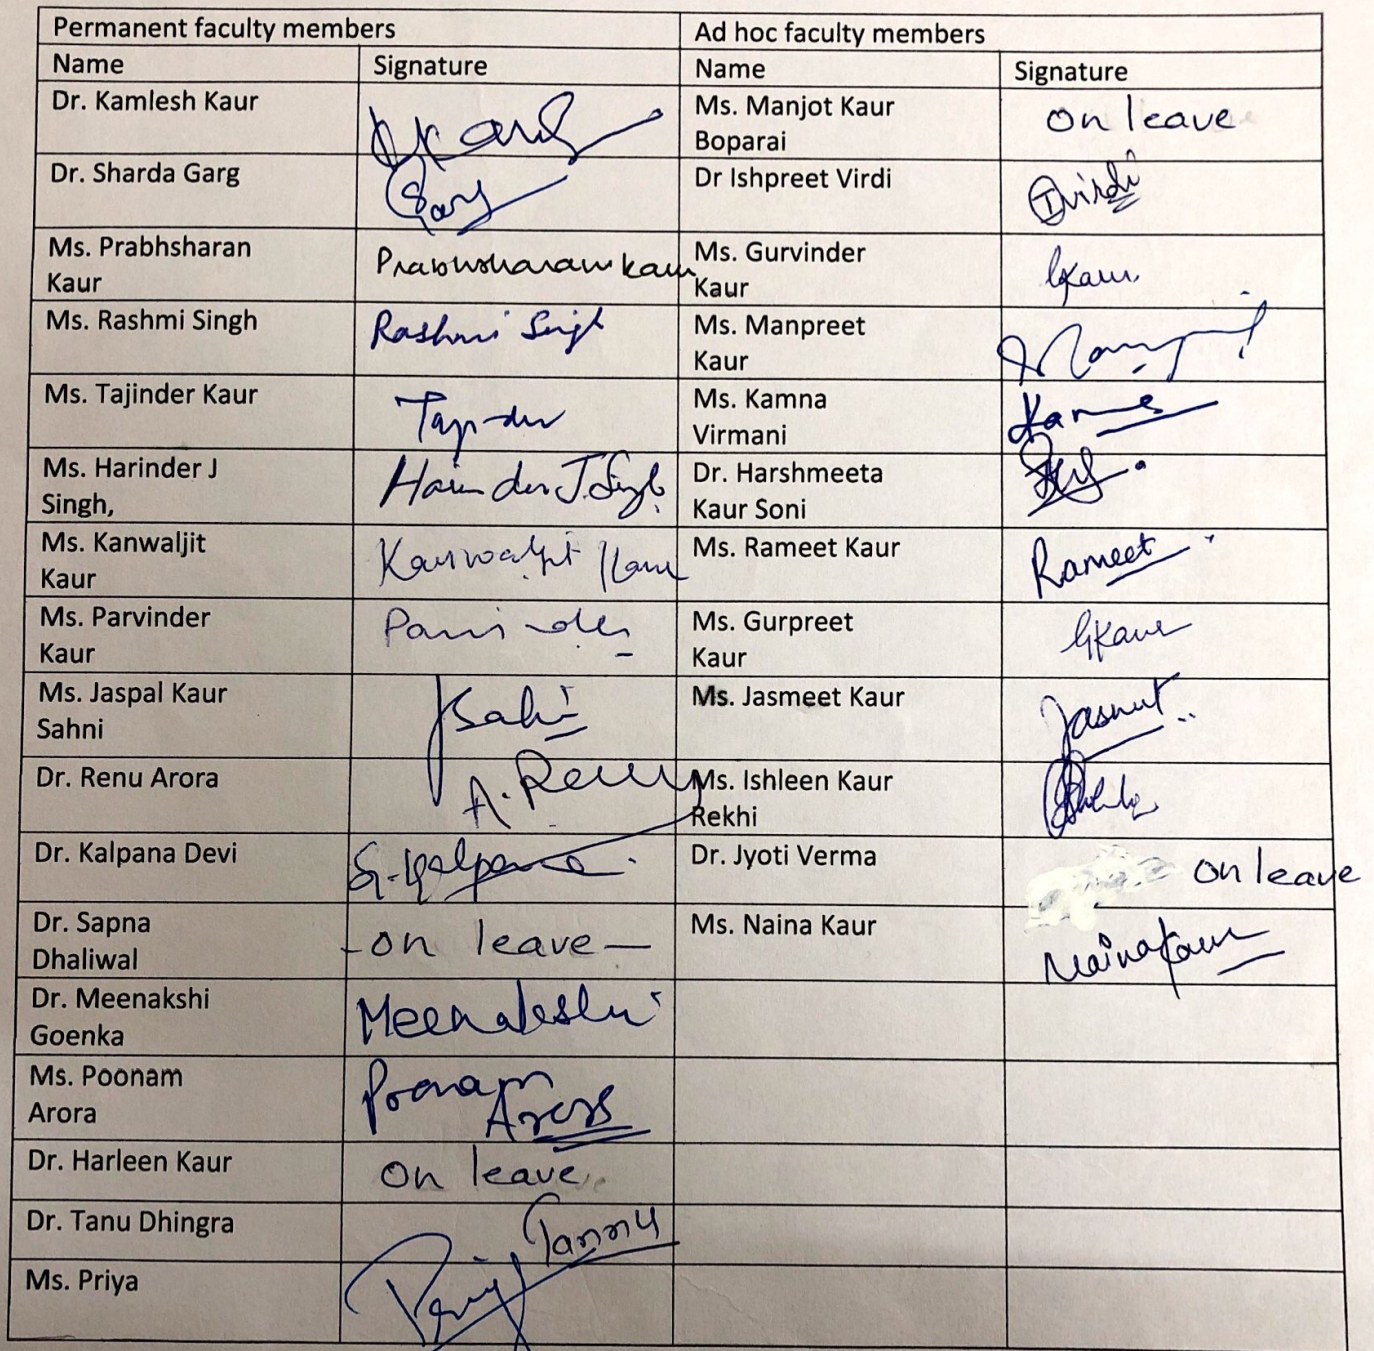 Permanent faculty members Ad hoc faculty members
Name Signature Name Signature
Dr. Kamlesh Kaur
Ms. Manjot Kaur
Boparai
on leave
Dr. Sharda Garg
Garg
Dr Ishpreet Virdi
Ivirdi
Ms. Prabhsharan
Kaur
Prabhsharan kaur
Ms. Gurvinder
Kaur
Gkaur
Ms. Rashmi Singh
Rashmi Singh
Ms. Manpreet
Kaur
Ms. Tajinder Kaur
Ms. Kamna
Virmani
Ms. Harinder J
Singh,
Harinder J. Singh
Dr. Harshmeeta
Kaur Soni
Ms. Kanwaljit
Kaur
Kanwaljit Kaur
Ms. Rameet Kaur
Rameet
Ms. Parvinder
Kaur
Ms. Gurpreet
Kaur
GKaur
Ms. Jaspal Kaur
Sahni
Ms. Jasmeet Kaur
Jasmeet
Dr. Renu Arora
A. Renu
Ms. Ishleen Kaur
Rekhi
Dr. Kalpana Devi
Dr. Jyoti Verma
on leave
Dr. Sapna
Dhaliwal
- on leave —
Ms. Naina Kaur
Naina Kaur
Dr. Meenakshi
Goenka
Meenakshi
Ms. Poonam
Arora
Poonam
Arora
Dr. Harleen Kaur
on leave
Dr. Tanu Dhingra
Ms. Priya
Priya